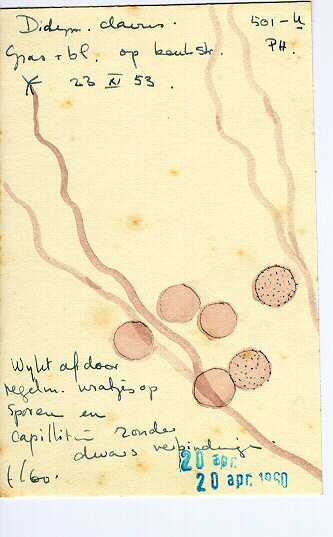 Didym. clavus.
501-U
Gras + bl. op houtstr.
PH.
23 XI 53.
Wijkt af door
regelm. wratjes op
Sporen en
Capillitium zonder
dwarsverbindingen.
20 apr.
20 apr. 1960